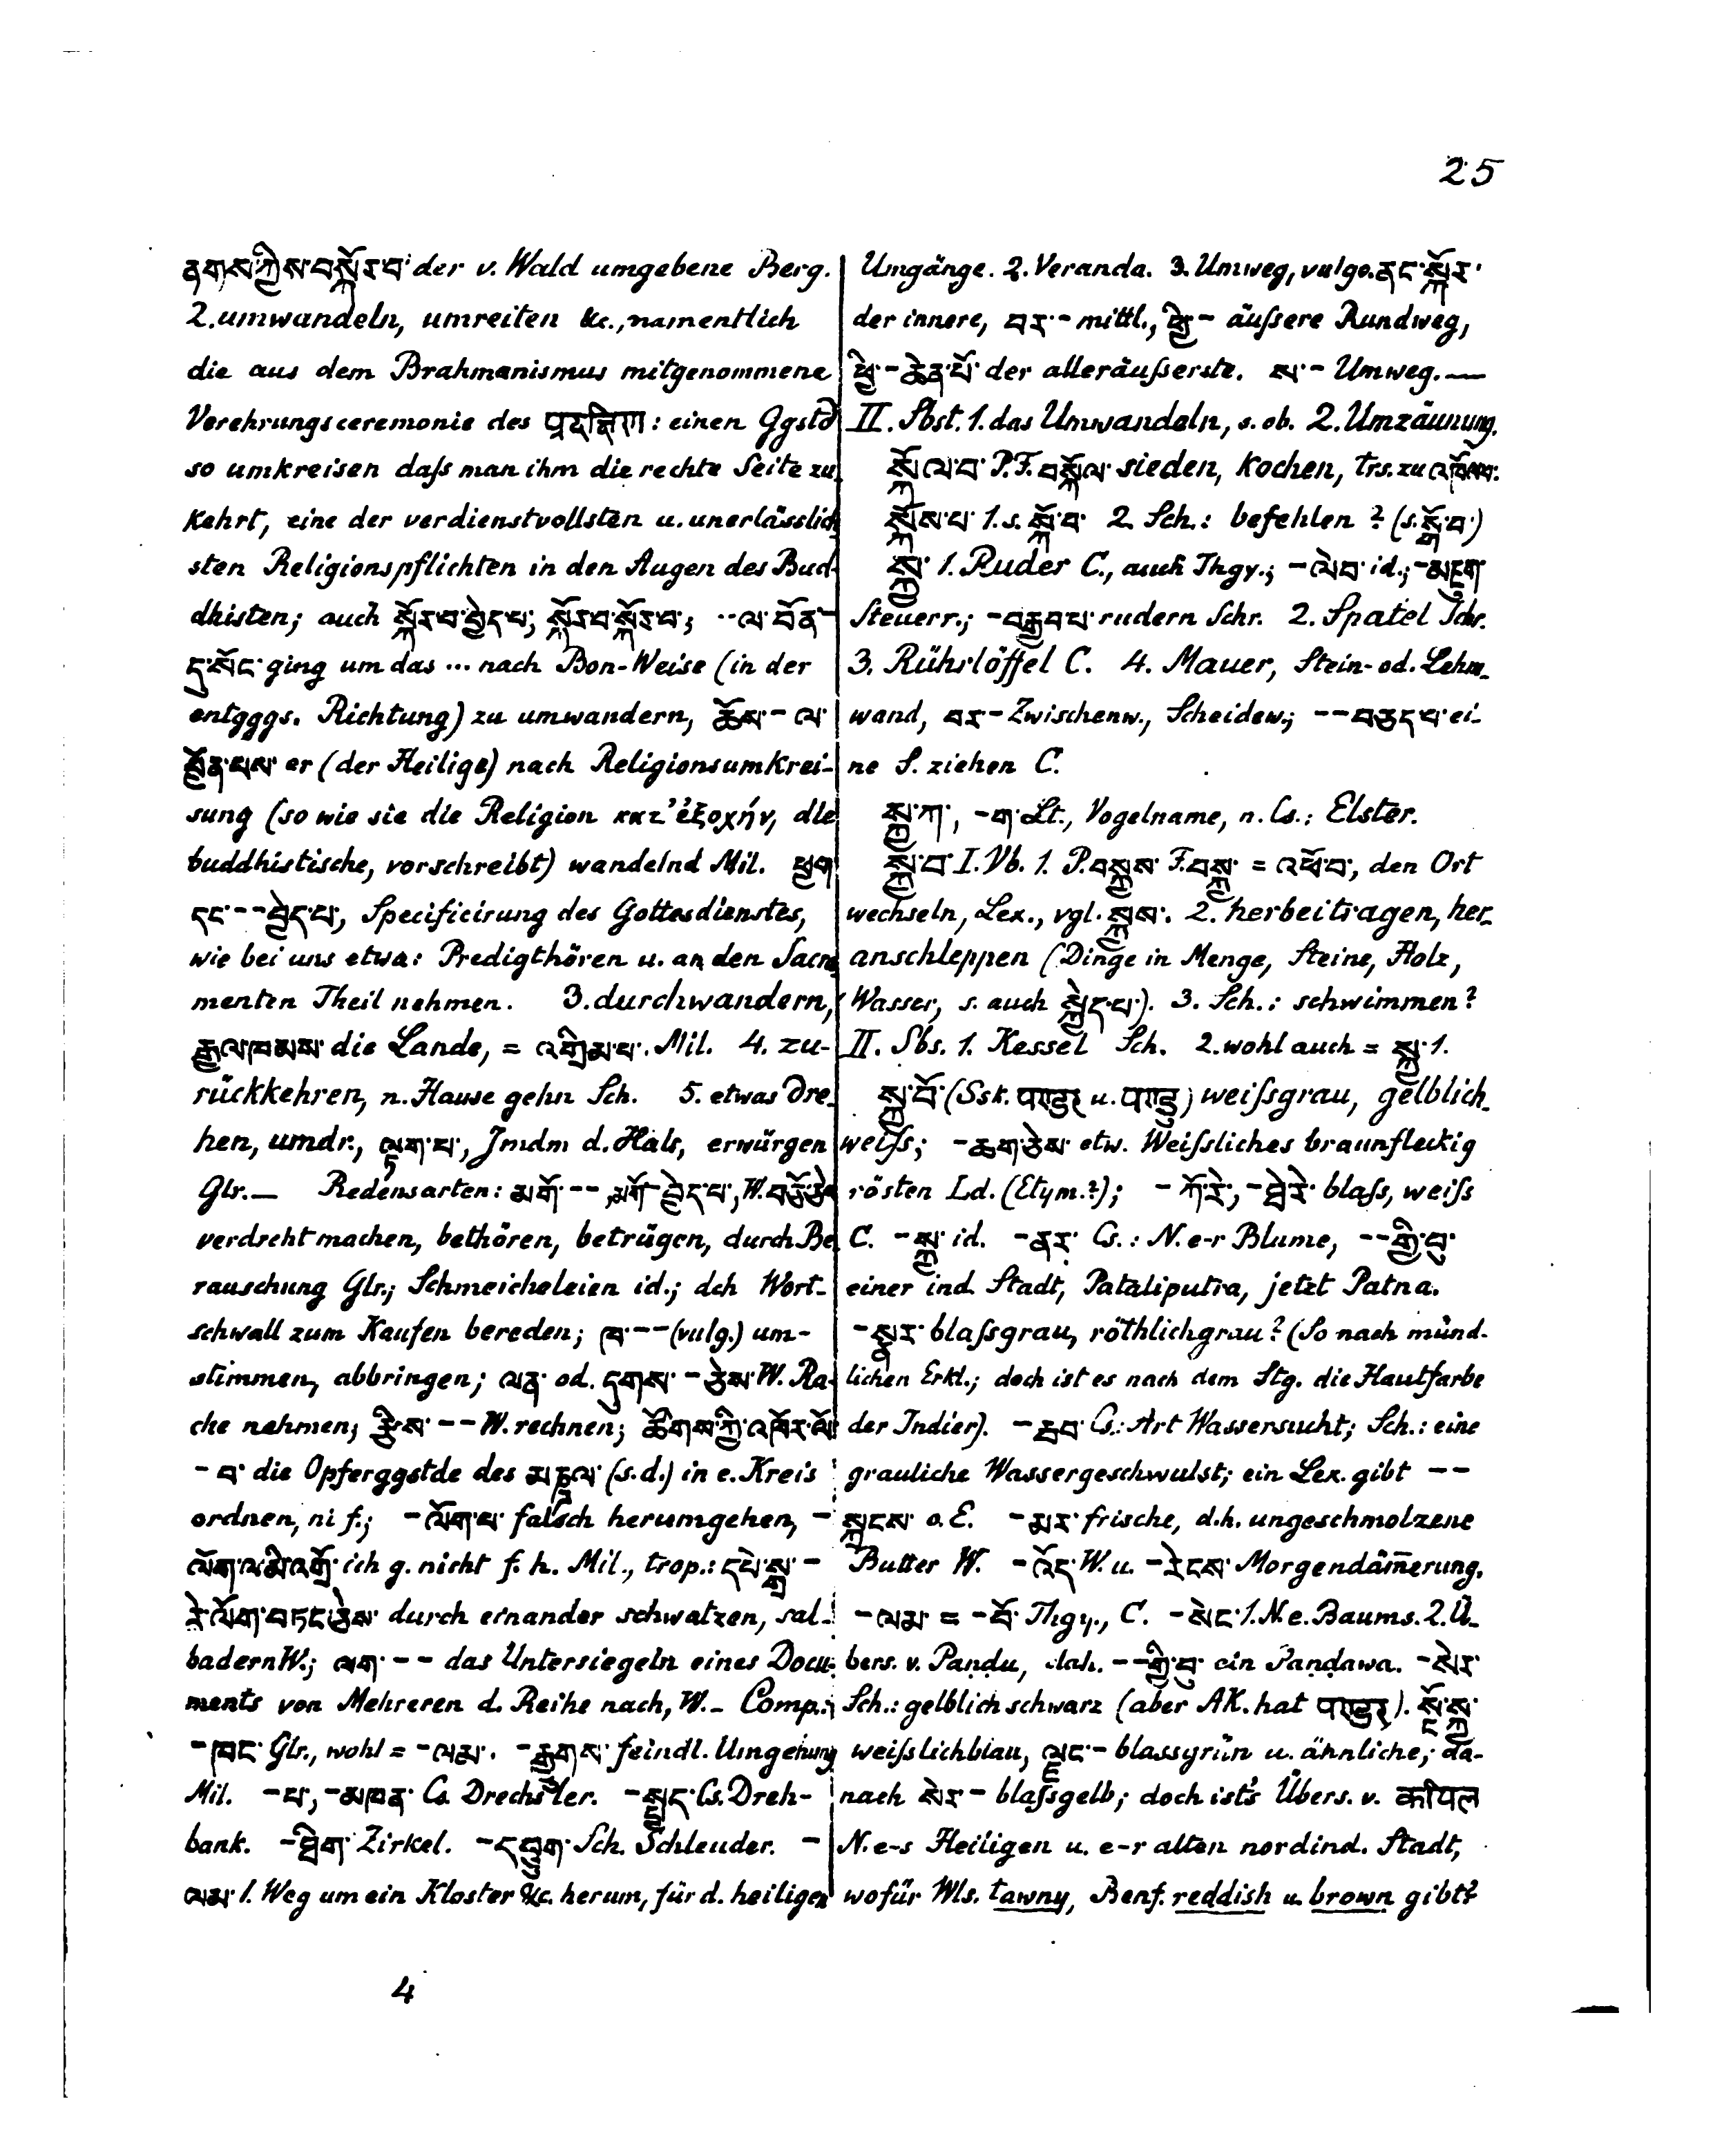 25
ནགས་ཀྱིས་བསྐོར་བ་ der v. Wald umgebene Berg.
2. umwandeln, umreiten &c., namentlich
die aus dem Brahmanismus mitgenommene
Verehrungsceremonie des प्रदक्षिण: einen Ggstd
so umkreisen daſs man ihm die rechte Seite zu-
kehrt, eine der verdienstvollsten u. unerlässlich
sten Religionspflichten in den Augen des Bud-
dhisten; auch སྐོར་བ་བྱེད་པ; སྐོར་བ་སྐོར་བ; ··ལ་བོན་–
དུ་སོང་ ging um das ... nach Bon-Weise (in der
entgggs. Richtung) zu umwandern, ཆོས་– ལ་
བྱོན་པས་ er (der Heilige) nach Religionsumkrei-
sung (so wie sie die Religion κατ’ ἐξοχήν, die
buddhistische, vorschreibt) wandelnd Mil. ཕྱག
དང་--བྱེད་པ, Specificirung des Gottesdienstes,
wie bei uns etwa: Predigthören u. an den Sacra
menten Theil nehmen. 3. durchwandern,
རྒྱལ་ཁམས་ die Lande, = འགྲིམ་པ. Mil. 4. zu-
rückkehren, n. Hause gehn Sch. 5. etwas dre-
hen, umdr., ལྟག་པ, Jmdm d. Hals, erwürgen
Glr.— Redensarten: མགོ་--, མགོ་–བྱེད་པ, W. བཅོ་ཅེས
verdreht machen, bethören, betrügen, durch Be
rauschung Glr.; Schmeicheleien id.; dch Wort-
schwall zum Kaufen bereden; ཁ་-- (vulg.) um-
stimmen, abbringen; ལན་ od. དུགས་ –ཅེས་ W. Ra-
che nehmen; རྩིས་ -- W. rechnen; ཚོགས་ཀྱི་འཁོར་ལོ
– བ་ die Opferggstde des མཎྜལ་ (s.d.) in e. Kreis
ordnen, ni f.; –ལོག་པ་ falsch herumgehen, –
ལོག་ལ་མི་འགྲོ་ ich g. nicht f. h. Mil., trop.: དཔེ་སྒྲ་ –
རེ་ལོག་བཏང་ཅེས་ durch einander schwatzen, sal-
badern W.; ལག་ -- das Untersiegeln eines Docu-
ments von Mehreren d. Reihe nach, W.– Comp.:
–ཁང་ Glr., wohl = –ལམ་. –རྒྱགས་ feindl. Umgehung
Mil. –པ, –མཁན་ Cs. Drechsler. –སྤྱད་ Cs. Dreh-
bank. –ཐིག་ Zirkel. –དབྱུག་ Sch. Schleuder. –
ལམ་ 1. Weg um ein Kloster &c. herum, für d. heiligen
Umgänge. 2. Veranda. 3. Umweg, vulgo. ནང་སྐོར་
der innere, བར་– mittl., ཕྱི་– äuſsere Rundweg,
ཕྱི་–ཆེན་པོ་ der alleräuſserste. ས་– Umweg.—
II. Sbst. 1. das Umwandeln, s. ob. 2. Umzäunung.
སྐོལ་བ་ P.F. བསྐོལ་ sieden, kochen, trs. zu འཁོལ་བ.
སྐོས་པ་ 1. s. སྐོ་བ་ 2 Sch.: befehlen? (s. སྒོ་བ་)
སྐྱ་ 1. Ruder C., auch Thgy.; –ལེབ་ id.; –མཇུག
Steuerr.; –བརྒྱབ་པ་ rudern Schr. 2. Spatel Schr.
3. Rührlöffel C. 4. Mauer, Stein- od. Lehm-
wand, བར་– Zwischenw., Scheidew.; --བརྩིད་པ་ ei-
ne S. ziehen C.
སྐྱ་ཀ, –ག་ Lt., Vogelname, n. Cs.: Elster.
སྐྱ་བ་ I. Vb. 1. P. བསྐྱས་ F. བསྐྱ་ = འཕོ་བ, den Ort
wechseln, Lex., vgl. སྐྱས་. 2. herbeitragen, her-
anschleppen (Dinge in Menge, Steine, Holz,
Wasser, s. auch སྐྱེད་པ་). 3. Sch.: schwimmen?
II. Sbs. 1. Kessel Sch. 2. wohl auch = སྐྱ་ 1.
སྐྱ་བོ་ (Ssk. पाण्डुर u. पाण्डु) weiſsgrau, gelblich-
weiſs; –ཆག་ཅེས་ etw. Weiſsliches braunfleckig
rösten Ld. (Etym.?); –ཀོ་རེ, –ཐེ་རེ་ blaſs, weiſs
C. –སྐྱ་ id. –ནར་ Cs.: N. e-r Blume, --གྱི་བུ་
einer ind. Stadt, Pataliputra, jetzt Patna.
–སྣར་ blaſsgrau, röthlichgrau? (So nach münd-
lichen Erkl.; doch ist es nach dem Stg. die Hautfarbe
der Indier). –རྦབ་ Cs.: Art Wassersucht; Sch.: eine
grauliche Wassergeschwulst; ein Lex. gibt --
སྐྲངས་ o. E. –མར་ frische, d.h. ungeschmolzene
Butter W. –འོད་ W. u. –རེངས་ Morgendäm̄erung.
–ལམ་ = –བོ་ Thgy., C. –སེང་ 1. N. e. Baums. 2. Ü-
bers. v. Paṇḍu, dah. --གྱི་བུ་ ein Paṇḍawa. –སེར་
Sch.: gelblich schwarz (aber AK. hat पाण्डुर). སྔོ་སྐྱ་
weiſslichblau, ལྗང་– blassgrün u. ähnliche; da-
nach སེར་– blaſsgelb; doch ist's Übers. v. कपिल
N. e-s Heiligen u. e-r alten nordind. Stadt,
wofür Wls. tawny, Benf. reddish u. brown gibt?
4